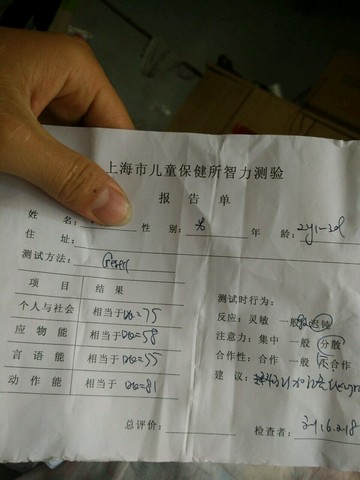 上海市儿童保健所智力测验
报告单
姓 名： 性 别：男 年 龄：2y1-3d
住 址：
测试方法：Gesell
项 目 结 果
个人与社会 相当于DQ=75
应 物 能 相当于DQ=58
言 语 能 相当于DQ=55
动 作 能 相当于DQ=81
测试时行为：
反应：灵敏 一般 迟钝
注意力：集中 一般 分散
合作性：合作 一般 不合作
建 议：
总评价：
检查者：